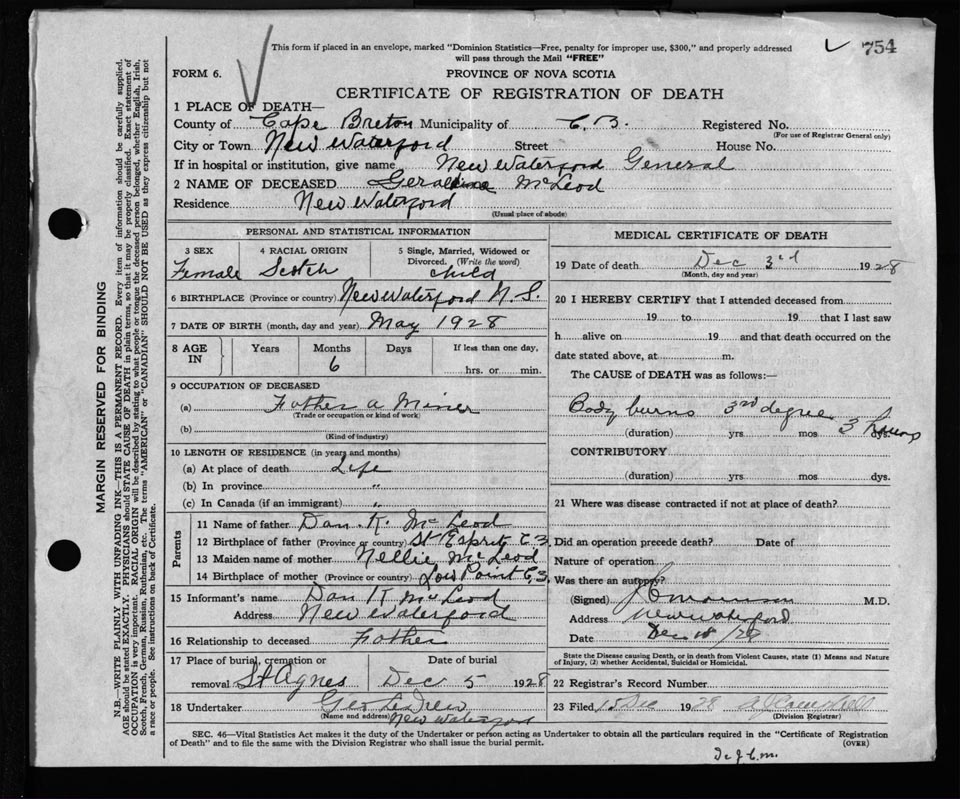 This form if placed in an envelope, marked "Dominion Statistics—Free, penalty for improper use, $300," and properly addressed
will pass through the Mail "FREE"
754
FORM 6.
PROVINCE OF NOVA SCOTIA
CERTIFICATE OF REGISTRATION OF DEATH
1 PLACE OF DEATH—
County of Cape Breton Municipality of C.B. Registered No.
(For use of Registrar General only)
City or Town New Waterford Street House No.
If in hospital or institution, give name New Waterford General
2 NAME OF DECEASED Geraldine McLeod
Residence New Waterford
(Usual place of abode)
PERSONAL AND STATISTICAL INFORMATION
3 SEX 4 RACIAL ORIGIN 5 Single, Married, Widowed or
Divorced. (Write the word)
Female Scotch child
6 BIRTHPLACE (Province or country) New Waterford N.S.
7 DATE OF BIRTH (month, day and year) May 1928
8 AGE IN Years Months Days If less than one day,
6 hrs. or min.
9 OCCUPATION OF DECEASED
(a) Father a Miner
(Trade or occupation or kind of work)
(b)
(Kind of industry)
10 LENGTH OF RESIDENCE (in years and months)
(a) At place of death Life
(b) In province "
(c) In Canada (if an immigrant) "
Parents
11 Name of father Dan. K. McLeod
12 Birthplace of father (Province or country) St Esprit C.B.
13 Maiden name of mother Nellie McLeod
14 Birthplace of mother (Province or country) Low Point C.B.
15 Informant's name Dan K McLeod
Address New Waterford
16 Relationship to deceased Father
17 Place of burial, cremation or Date of burial
removal St Agnes Dec 5 1928
18 Undertaker Geo LeDrew
(Name and address) New Waterford
MEDICAL CERTIFICATE OF DEATH
19 Date of death Dec 3rd 1928
(Month, day and year)
20 I HEREBY CERTIFY that I attended deceased from
19 to 19 that I last saw
h alive on 19 and that death occurred on the
date stated above, at m.
The CAUSE of DEATH was as follows:—
Body burns 3rd degree
(duration) yrs mos 3 hours dys.
CONTRIBUTORY
(duration) yrs. mos. dys.
21 Where was disease contracted if not at place of death?
Did an operation precede death? Date of
Nature of operation
Was there an autopsy?
(Signed) M.D.
Address New Waterford
Date Dec 18/28
State the Disease causing Death, or in death from Violent Causes, state (1) Means and Nature
of Injury, (2) whether Accidental, Suicidal or Homicidal.
22 Registrar's Record Number
23 Filed 15 Dec 1928 Campbell
(Division Registrar)
SEC. 46—Vital Statistics Act makes it the duty of the Undertaker or person acting as Undertaker to obtain all the particulars required in the "Certificate of Registration
of Death" and to file the same with the Division Registrar who shall issue the burial permit.
(OVER)
MARGIN RESERVED FOR BINDING
N.B.—WRITE PLAINLY WITH UNFADING INK—THIS IS A PERMANENT RECORD. Every item of information should be carefully supplied.
AGE should be stated EXACTLY. PHYSICIANS should STATE CAUSE OF DEATH in plain terms, so that it may be properly classified. Exact statement of
OCCUPATION is very important. RACIAL ORIGIN will be described by stating to what people or tongue the deceased person belonged, whether English, Irish,
Scotch, French, German, Russian, Ruthenian, etc. The terms "AMERICAN" or "CANADIAN" SHOULD NOT BE USED as they express citizenship but not
a race or people. See instructions on back of Certificate.